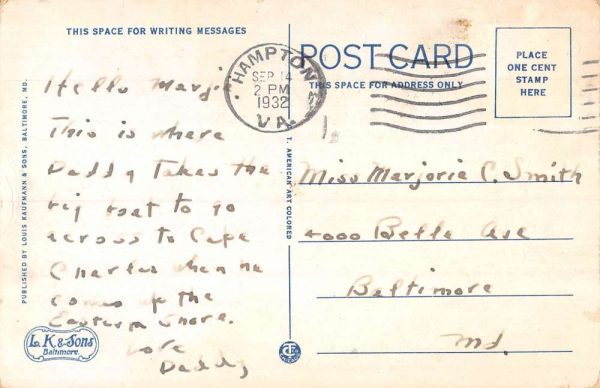 THIS SPACE FOR WRITING MESSAGES
Hello Marji
This is where
Daddy takes the
big boat to go
across to Cape
Charles when he
comes up the
Eastern Shore.
Love
Daddy
PUBLISHED BY LOUIS KAUFMANN & SONS, BALTIMORE, MD.
L. K & Sons
Baltimore.
T. AMERICAN ART COLORED
HAMPTON
SEP 14
2 PM
1932
VA.
POST CARD
THIS SPACE FOR ADDRESS ONLY
PLACE
ONE CENT
STAMP
HERE
Miss Marjorie C. Smith
4000 Belle Ave
Baltimore
Md.